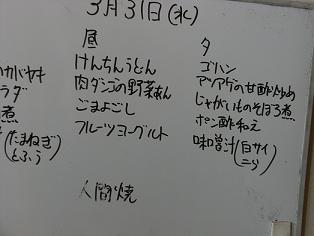 3月31日(水)
のカバヤキ
ラダ
煮
(たまねぎ)
とふう
昼
けんちんうどん
肉ダンゴの野菜あん
ごまよごし
フルーツヨーグルト
夕
ゴハン
アツアゲの甘酢炒め
じゃがいものそぼろ煮
ポン酢和え
味噌汁(白サイ
ニラ)
人間焼